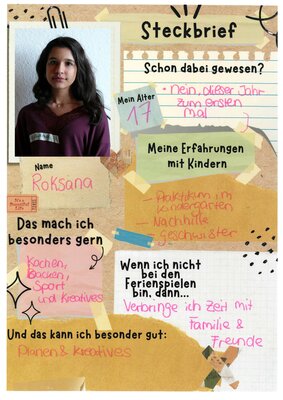 Steckbrief
Schon dabei gewesen?
• Nein, dieser Jahr
zum ersten
mal
Mein Alter
17
Meine Erfahrungen
mit Kindern
- Praktikum im
Kindergarten
- Nachhilfe
Geschwister
Name
Roksana
Das mach ich
besonders gern
Kochen,
Backen,
Sport
und Kreatives
Wenn ich nicht
bei den
Ferienspielen
bin, dann...
Verbringe ich Zeit mit
Familie &
Freunde
Und das kann ich besonder gut:
Planen & Kreatives